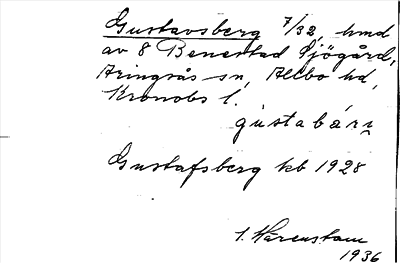 Gustavsberg 7/32, hmd
av 8 Benestad Sjögård,
Aringsås sn, Allbo hd,
Kronobs l.
gùstabárj
Gustafsberg kb 1928
I. Härenstam
1936